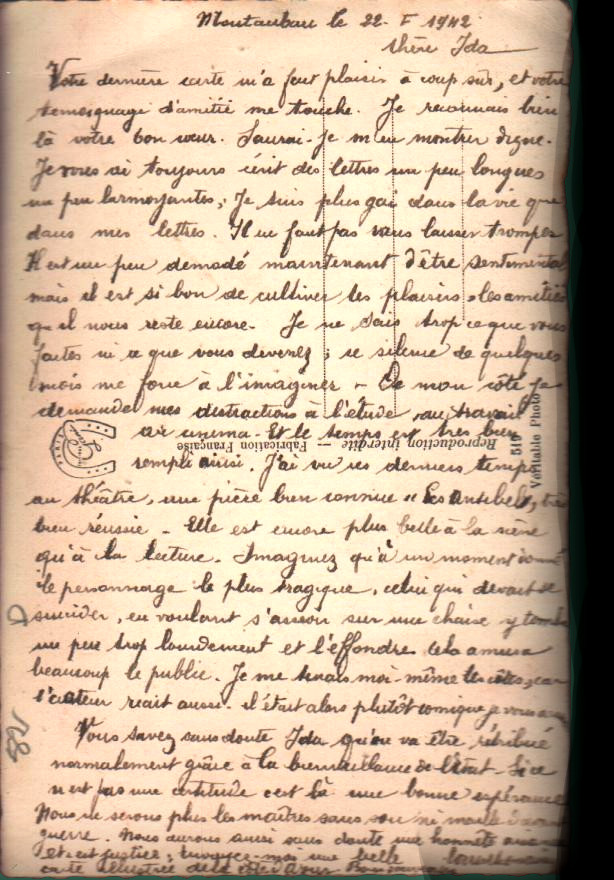 Montauban le 22. I 1942
chère Ida
Votre dernière carte m'a fait plaisir à coup sûr, et votre
temoignage d'amitié me touche. Je reconnais bien
là votre bon cœur. Saurai-je m'en montrer digne.
Je vous ai toujours écrit des lettres un peu longues
un peu larmoyantes, Je suis plus gai dans la vie que
dans mes lettres. Il ne faut pas vous laisser tromper
Il est un peu demodé maintenant d'être sentimental
mais il est si bon de cultiver les plaisirs, les amitiés
qu'il nous reste encore. Je ne sais trop ce que vous
faites ni ce que vous devenez ; ce silence de quelques
mois me force à l'imaginer - De mon côté je
demande mes distractions à l'étude, au travail
au cinema - Et le temps est très bien
rempli ainsi. J'ai vu ces derniers temps
au théâtre, une pièce bien connue "Les Antibel", très
bien réussie - Elle est encore plus belle à la scène
qu'à la lecture. Imaginez qu'à un moment donné
le personnage le plus tragique, celui qui devait se
suicider, en voulant s'asseoir sur une chaise y tombe
un peu trop lourdement et l'effondre. Cela amusa
beaucoup le public. Je me tenais moi-même les côtes, car
l'acteur riait aussi. il était alors plutôt comique je vous assure
Vous savez sans doute Ida qu'on va être rétribué
normalement grâce à la bienveillance de l'état - Si ce
n'est pas une certitude c'est là une bonne espérance
Nous ne serons plus les maîtres sans sou ni maille
guerre. Nous aurons ainsi sans doute une honnête
et c'est justice, envoyez-moi une belle
carte illustrée de la Côte d'Azur. Bon souvenir
Reproduction interdite — Fabrication Française
519
Véritable Photo